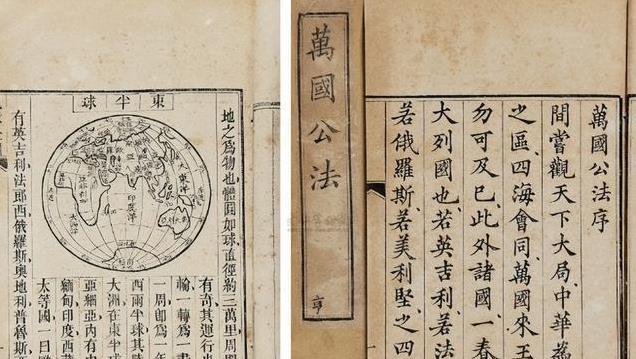 東半球
地之爲物也體圓如球直徑約三萬里周
有奇其運行
輪一轉爲一
一周卽爲一年
西兩半球其陸
大洲在東半球
亞細亞內有中
緬甸印度西
太等國一曰
有英吉利法郎西俄羅斯奧地利普魯西
大東洋
印度洋
萬國公法
亨
萬國公法序
間嘗觀天下大局中華爲
之區四海會同萬國來王
勿可及已此外諸國一春
大列國也若英吉利若法
若俄羅斯若美利堅之四